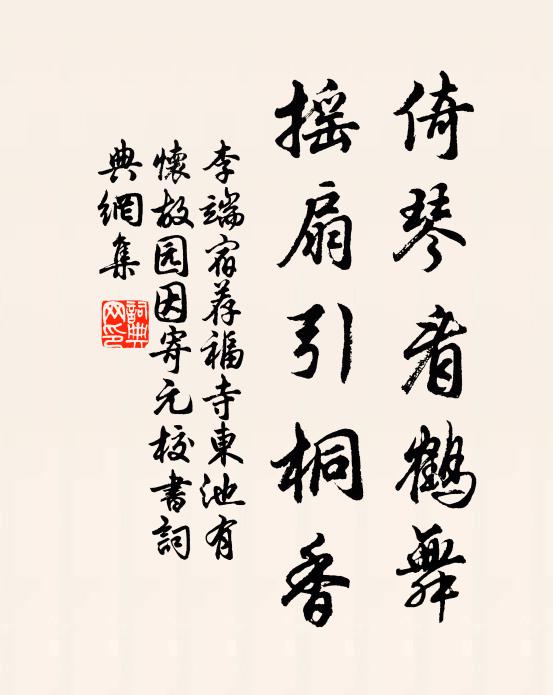 倚琴看鶴舞
摇扇引桐香
李端宿荐福寺東池有
懷故园因寄元校書詞
典網集
詞典
网印